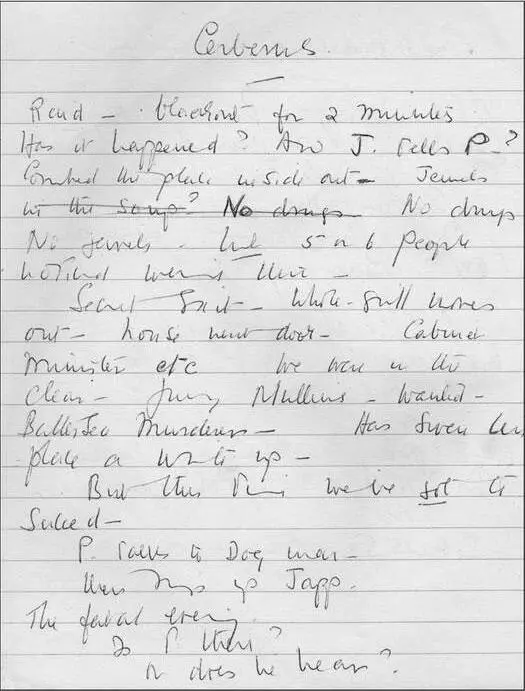 Cerberus
Raid - blackout for 2 minutes
Has it happened? And J. tells P-?
Combed the place inside out - Jewels
in the soup? No drugs No drugs
No jewels - but 5 or 6 people
noticed weren't there -
Secret Exit - Whole moves
out - house next door - Cabinet
Minister etc We were in the
clear - Jimmy Mullins - wanted -
Battersea Murderer - Has given
place a write up -
But this time we've got to
succeed -
P. talks to Dog man -
then rings up Japp.
The fatal evening.
Is P there?
or does he hear?